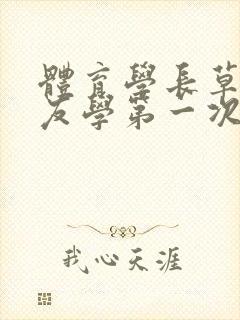 體育學長草
友學第一次
我心天涯